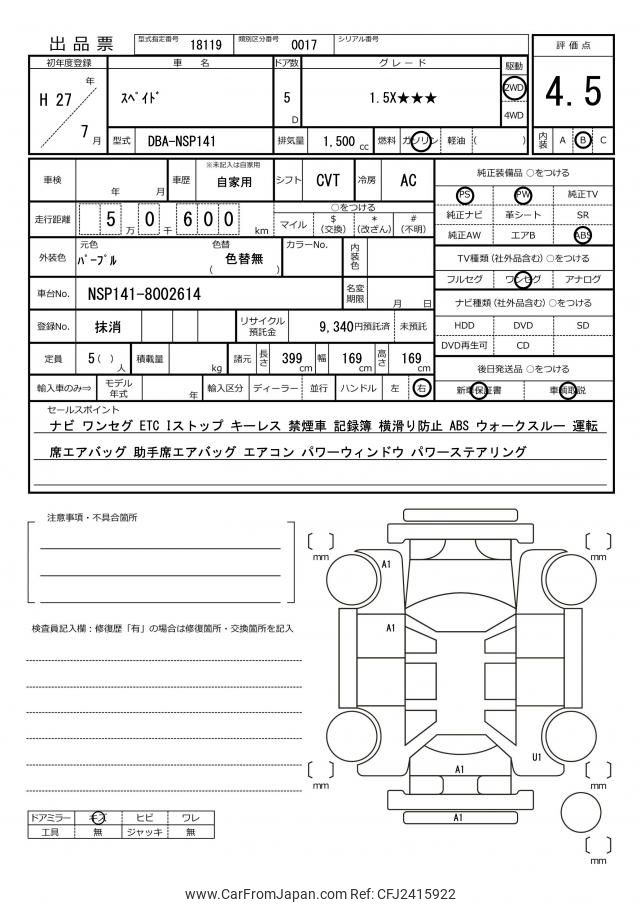 出品票
型式指定番号 18119 類別区分番号 0017 シリアル番号
評価点
4.5
内装 A B C
初年度登録 車名 ドア数 グレード 駆動
H 27 年 7 月 スペイド 5 D 1.5X★★★ 2WD 4WD
型式 DBA-NSP141 排気量 1,500 cc 燃料 ガソリン 軽油 ( )
車検 年 月 車歴 ※未記入は自家用 自家用 シフト CVT 冷房 AC
走行距離 5 万 0 千 6 0 0 km
○をつける
マイル $ (交換) * (改ざん) # (不明)
外装色 元色 パープル 色替 ( 色替無 ) カラーNo. 内装色
車台No. NSP141-8002614 名変期限 月 日
登録No. 抹消 リサイクル預託金 9,340円預託済 未預託
定員 5( ) 人 積載量 kg 諸元 長さ 399 cm 幅 169 cm 高さ 169 cm
輸入車のみ⇒ モデル年式 年 輸入区分 ディーラー 並行 ハンドル 左 右
純正装備品 ○をつける
PS PW 純正TV
純正ナビ 革シート SR
純正AW エアB ABS
TV種類 (社外品含む) ○をつける
フルセグ ワンセグ アナログ
ナビ種類 (社外品含む) ○をつける
HDD DVD SD
DVD再生可 CD
後日発送品 ○をつける
新車保証書 車輌取説
セールスポイント
ナビ ワンセグ ETC Iストップ キーレス 禁煙車 記録簿 横滑り防止 ABS ウォークスルー 運転
席エアバッグ 助手席エアバッグ エアコン パワーウィンドウ パワーステアリング
注意事項・不具合箇所
検査員記入欄：修復歴「有」の場合は修復箇所・交換箇所を記入
ドアミラー キズ ヒビ ワレ
工具 無 ジャッキ 無
mm
mm
A1
A1
U1
A1
A1
mm
mm
mm
www.CarFromJapan.com Ref: CFJ2415922